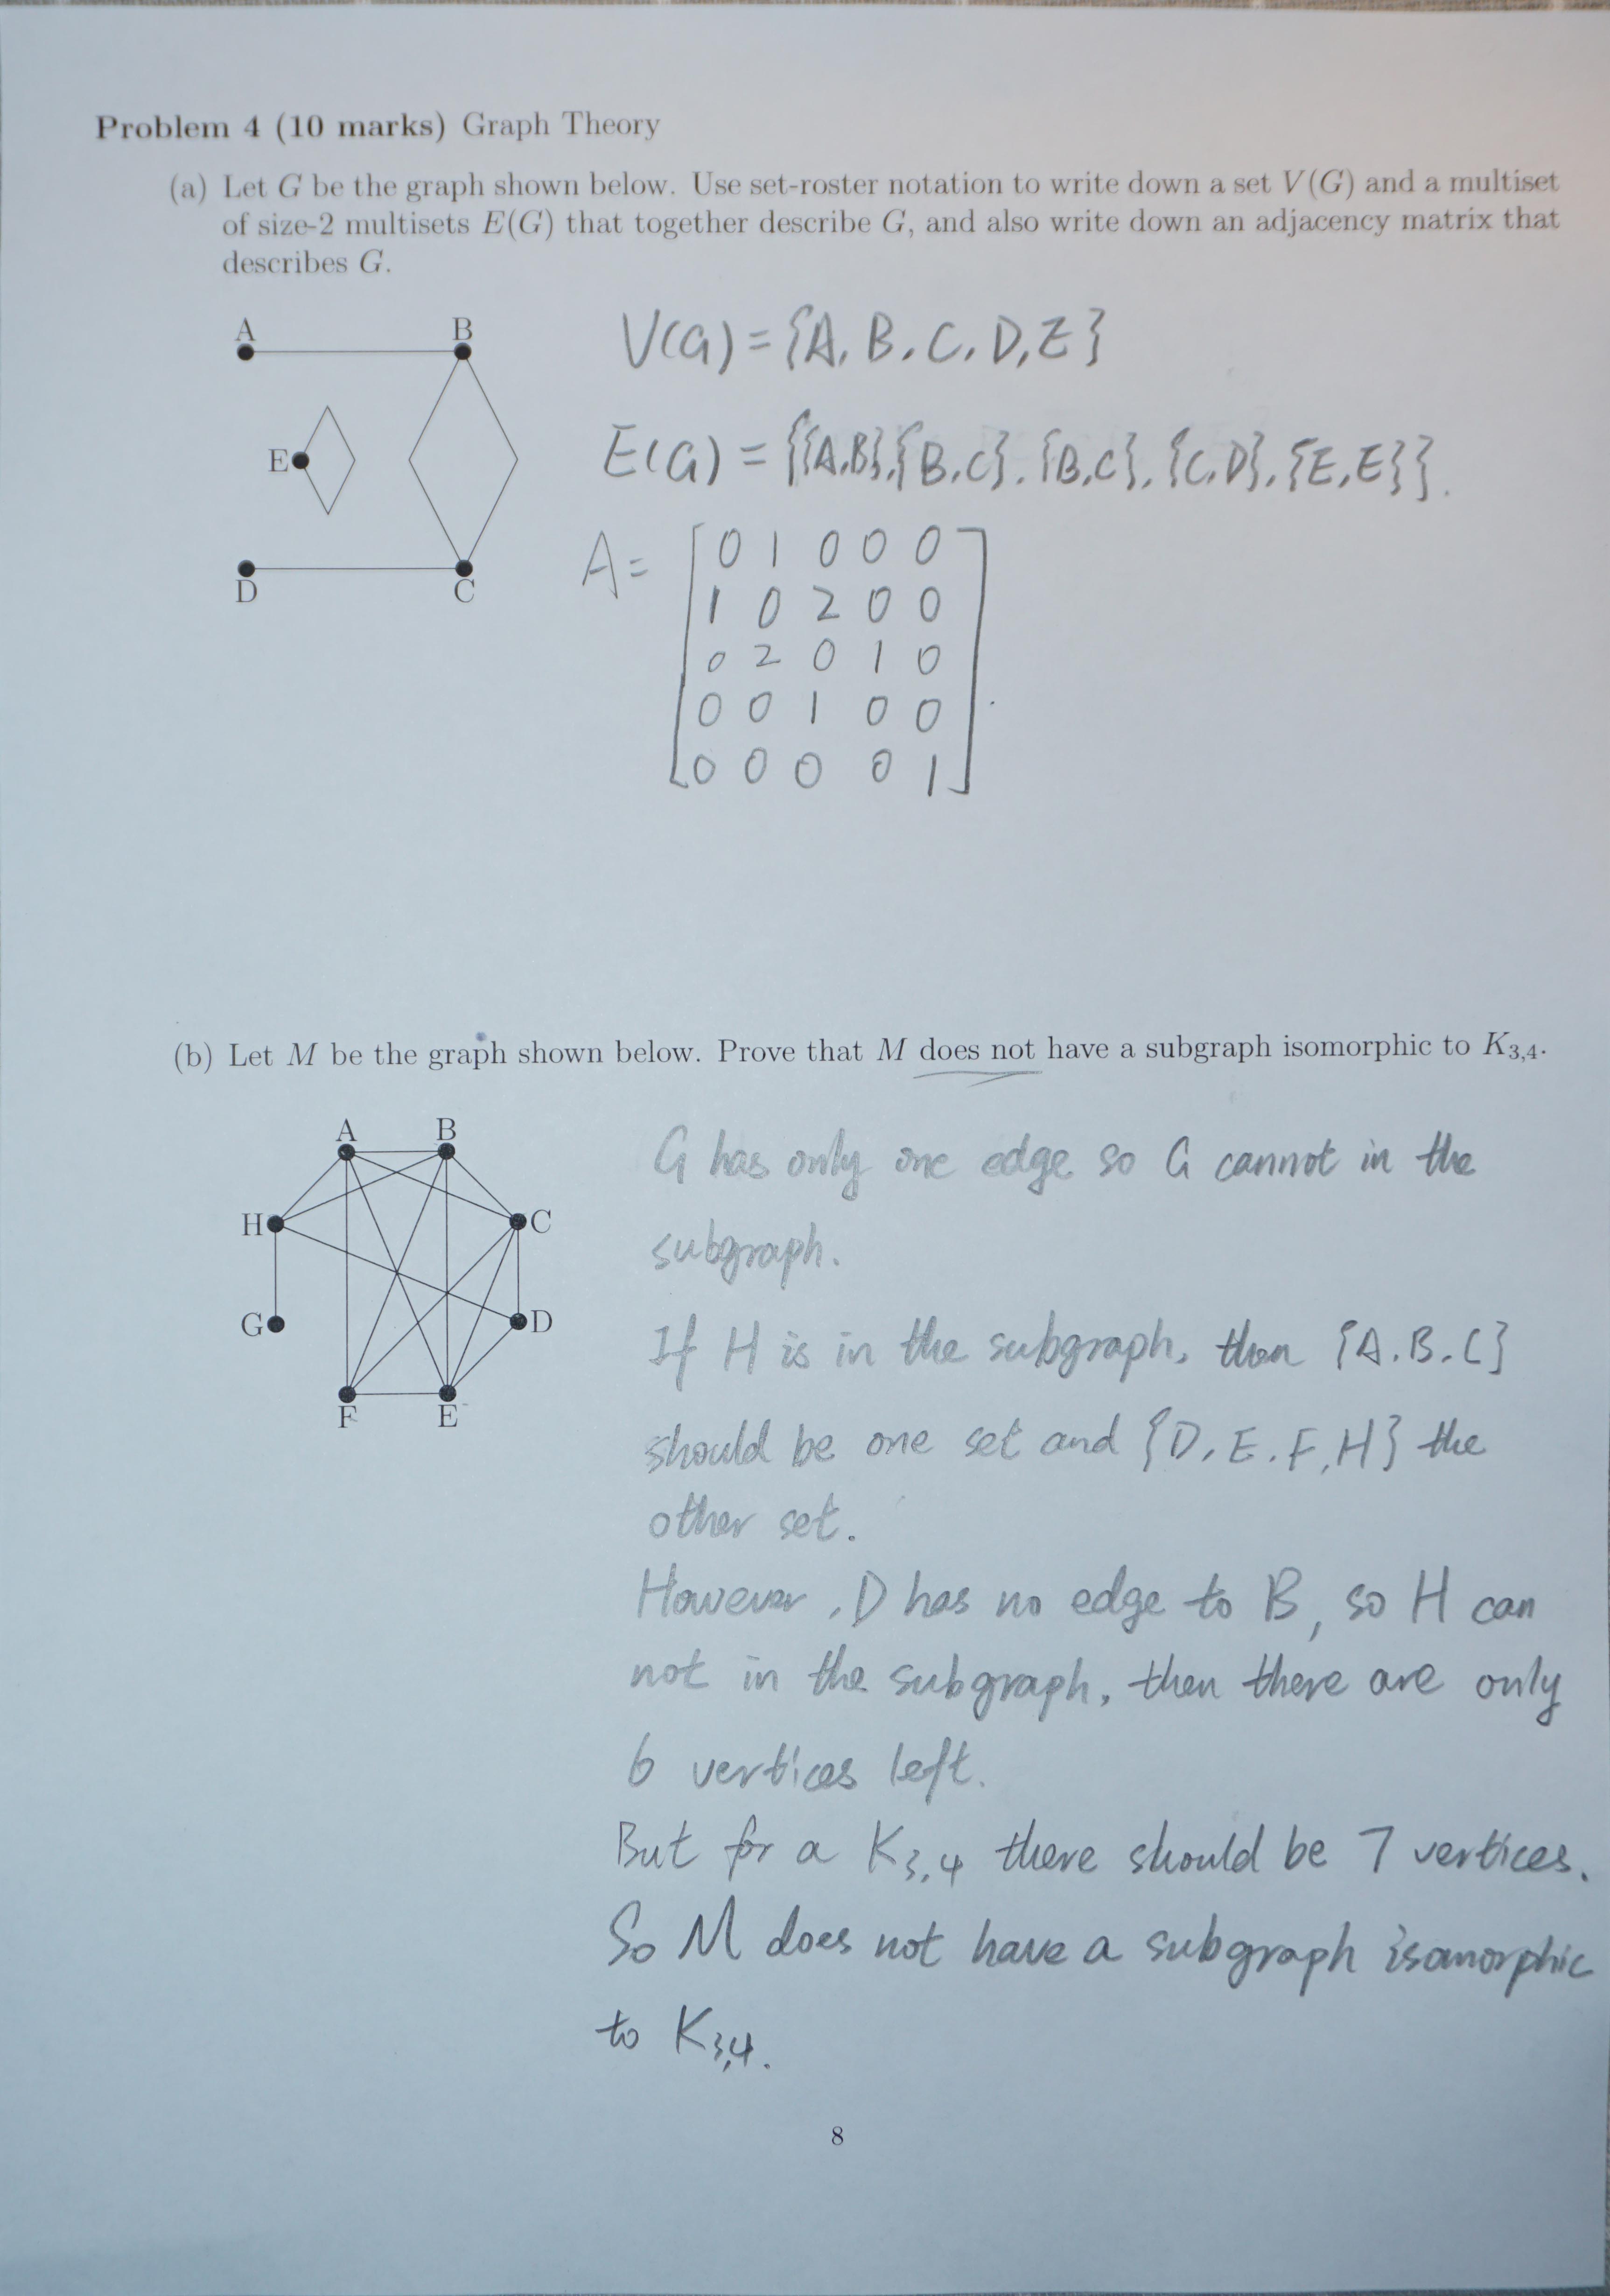 Problem 4 (10 marks) Graph Theory
(a) Let G be the graph shown below. Use set-roster notation to write down a set V(G) and a multiset
of size-2 multisets E(G) that together describe G, and also write down an adjacency matrix that
describes G.
A B
E
D C
V(G) = {A, B, C, D, E}
E(G) = {{A,B},{B,C},{B,C},{C,D},{E,E}}.
A =
0 1 0 0 0
1 0 2 0 0
0 2 0 1 0
0 0 1 0 0
0 0 0 0 1
(b) Let M be the graph shown below. Prove that M does not have a subgraph isomorphic to K3,4.
A B
H C
G D
F E
G has only one edge so G cannot in the
subgraph.
If H is in the subgraph, then {A.B.C}
should be one set and {D, E. F, H} the
other set.
However, D has no edge to B, so H can
not in the subgraph, then there are only
6 vertices left.
But for a K3,4 there should be 7 vertices.
So M does not have a subgraph isomorphic
to K3,4.
8